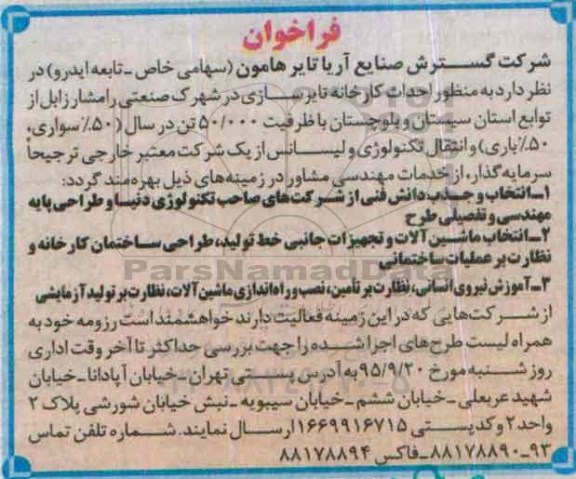 فراخوان
شرکت گسترش صنایع آریا تایر هامون (سهامی خاص ـ تابعه ایدرو) در
نظر دارد به منظور احداث کارخانه تایرسازی در شهرک صنعتی رامشار زابل از
توابع استان سیستان و بلوچستان با ظرفیت ۵۰/۰۰۰ تن در سال (۵۰٪ سواری،
۵۰٪ باری) و انتقال تکنولوژی و لیسانس از یک شرکت معتبر خارجی ترجیحاً
سرمایه گذار، از خدمات مهندسی مشاور در زمینه‌های ذیل بهره‌مند گردد:
۱ـ انتخاب و جذب دانش فنی از شرکت‌های صاحب تکنولوژی دنیا و طراحی پایه
مهندسی و تفصیلی طرح
۲ـ انتخاب ماشین آلات و تجهیزات جانبی خط تولید، طراحی ساختمان کارخانه و
نظارت بر عملیات ساختمانی
ParsNamadData
۳ـ آموزش نیروی انسانی، نظارت بر تأمین، نصب و راه‌اندازی ماشین آلات، نظارت بر تولید آزمایشی
از شرکت‌هایی که در این زمینه فعالیت دارند خواهشمند است رزومه خود به
همراه لیست طرح‌های اجرا شده را جهت بررسی حداکثر تا آخر وقت اداری
روز شنبه مورخ ۹۵/۹/۲۰ به آدرس پستی تهران ـ خیابان آپادانا ـ خیابان
شهید عربعلی ـ خیابان ششم ـ خیابان سیبویه ـ نبش خیابان شورشی پلاک ۲
واحد ۲ و کدپستی ۱۶۶۹۹۱۶۷۱۵ ارسال نمایند. شماره تلفن تماس
۹۳ـ۸۸۱۷۸۸۹۰ ـ فاکس ۸۸۱۷۸۸۹۴